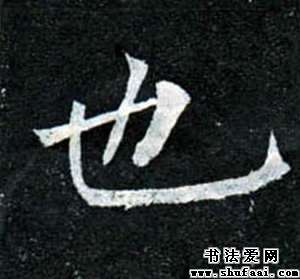 也
书法爱网
www.shufaai.com